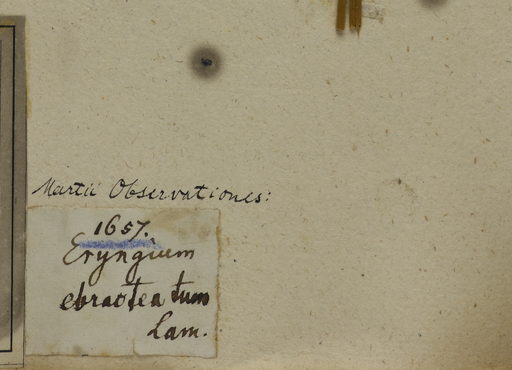 Martii Observationes:
1657.
Eryngium
ebracteatum
Lam.